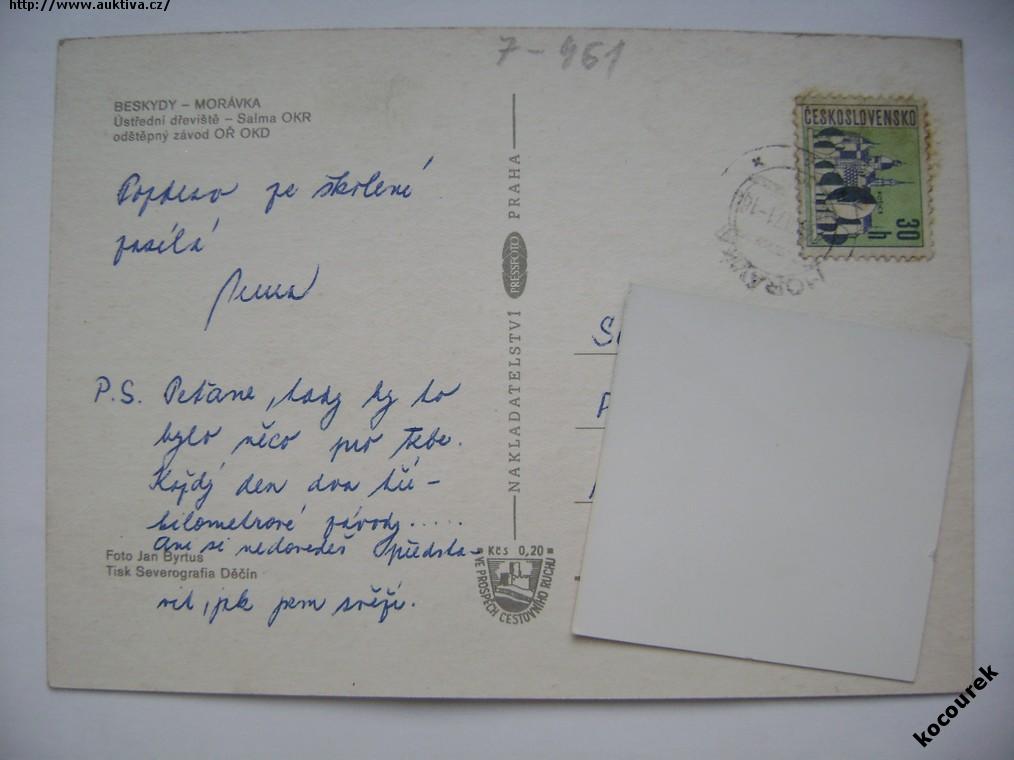 http://www.auktiva.cz/
7-961
BESKYDY – MORÁVKA
Ústřední dřeviště – Salma OKR
odštěpný závod OŘ OKD
Pozdrav ze školení
zasílá
P.S. Peťane, tady by to
bylo něco pro tebe.
Každý den dva tří-
kilometrové závody.....
Ani si nedovedeš předsta-
vit, jak jsem svěží.
Foto Jan Byrtus
Tisk Severografia Děčín
NAKLADATELSTVÍ PRESSFOTO PRAHA
Kčs 0,20
VE PROSPĚCH CESTOVNÍHO RUCHU
ČESKOSLOVENSKO
30 h
MORÁVKA
kocourek